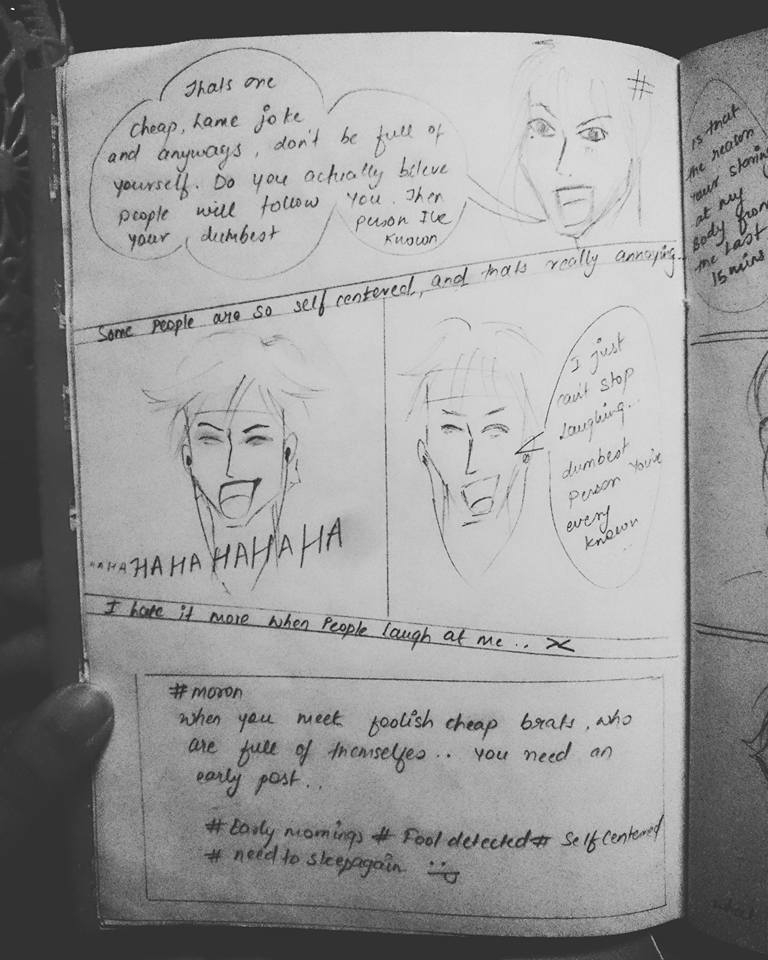 Thats one
cheap, Lame joke
and anyways, don't be full of
yourself. Do you actually bileve
people will follow you. Then
your dumbest person I've
known
#
Some People are so self centered, and thats really annoying..
HAHA HAHA HAHAHA
I just
can't stop
Laughing...
dumbest
Person You're
every
known
...
I hate it more when People Laugh at me.. X
#moron
when you meet foolish cheap brats, who
are full of themselfes.. you need an
early post..
#Early mornings # Fool detected # Self Centered
# need to sleepagain
is that
the reason
your staring
at my
Body from
the Last
15 mins